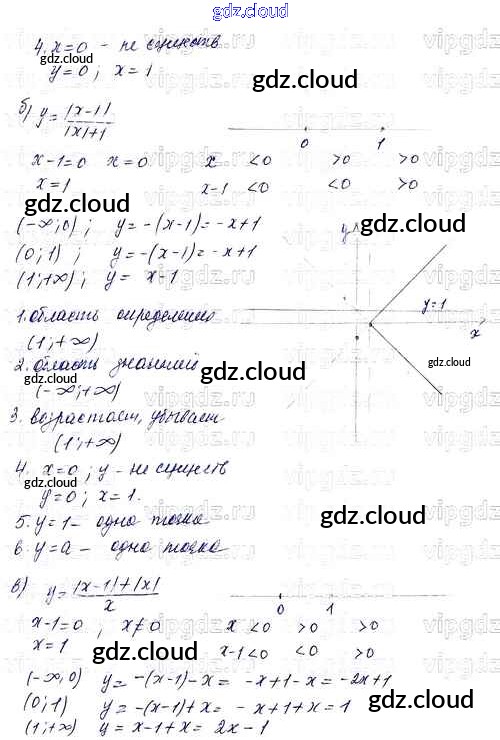 gdz.cloud
4. x=0 - не существ
y=0; x=1
gdz.cloud
б) y = |x-1| / |x|+1
0 1
x-1=0 x=0 x <0 >0 >0
x=1 x-1 <0 <0 >0
gdz.cloud
(-∞;0); y=-(x-1)=-x+1
(0;1); y=-(x-1)=-x+1
(1;+∞); y= x-1
y
gdz.cloud
y=1
x
1. область определения
(1;+∞)
2. область значений
gdz.cloud
(-∞;+∞)
3. возрастает, убывает
(1;+∞)
4. x=0; y - не существ
y=0; x=1.
gdz.cloud
5. y=1 - одна точка
6. y=a - одна точка
gdz.cloud
в) y = |x-1|+|x| / x
0 1
x-1=0; x≠0 x <0 >0 >0
x=1 x-1 <0 <0 >0
gdz.cloud
(-∞,0) y= -(x-1)-x= -x+1-x= -2x+1
(0;1) y= -(x-1)+x= -x+1+x= 1
(1;+∞) y= x-1+x= 2x-1
gdz.cloud
vipgdz.ru